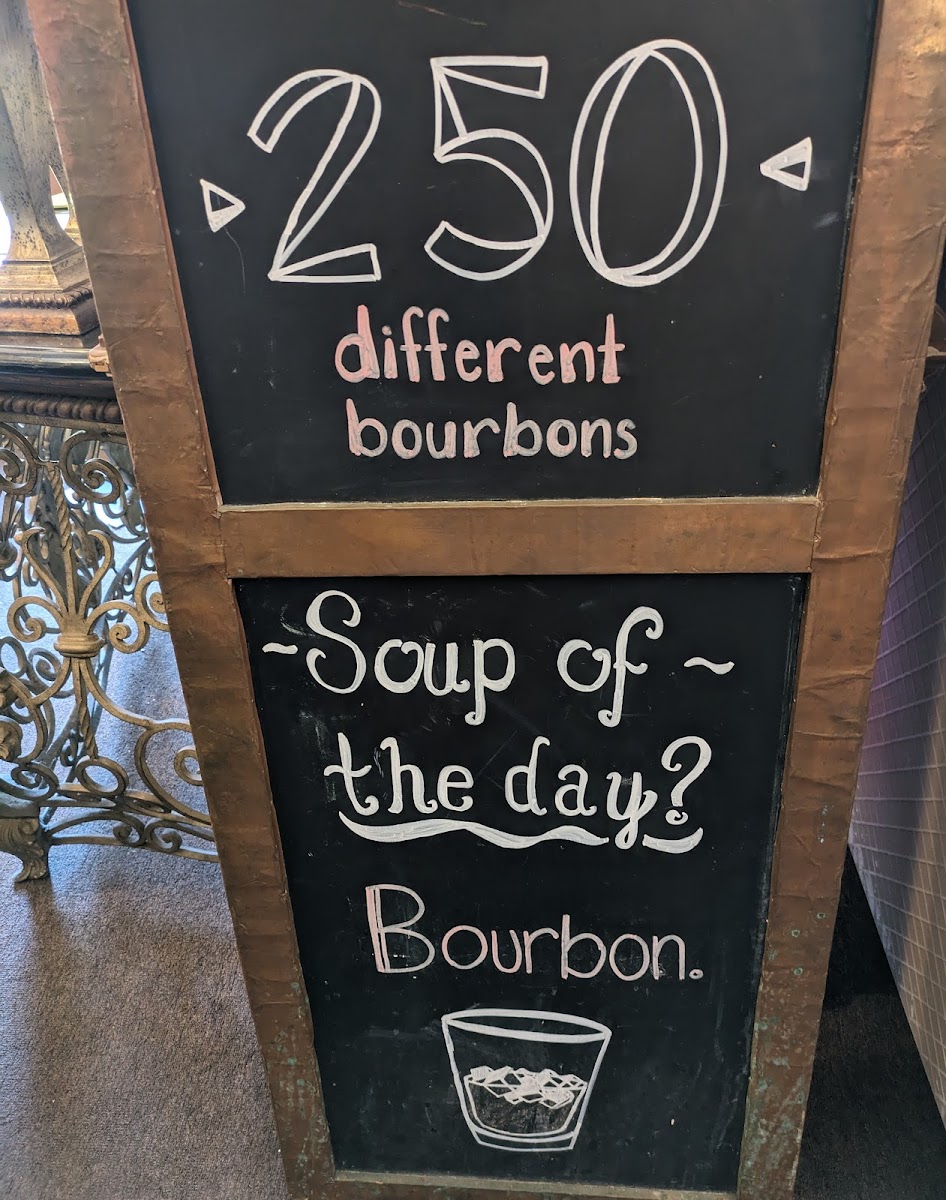 250
different
bourbons
~Soup of~
the day?
Bourbon.